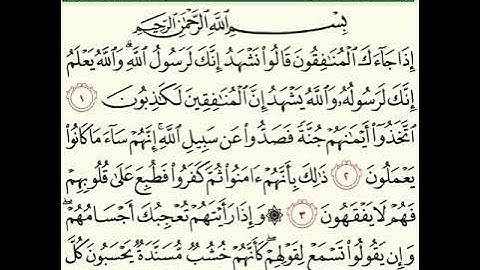 بِسْمِ ٱللَّهِ ٱلرَّحْمَٰنِ ٱلرَّحِيمِ
إِذَا جَآءَكَ ٱلْمُنَٰفِقُونَ قَالُوا۟ نَشْهَدُ إِنَّكَ لَرَسُولُ ٱللَّهِ ۗ وَٱللَّهُ يَعْلَمُ
إِنَّكَ لَرَسُولُهُۥ وَٱللَّهُ يَشْهَدُ إِنَّ ٱلْمُنَٰفِقِينَ لَكَٰذِبُونَ ١
ٱتَّخَذُوٓا۟ أَيْمَٰنَهُمْ جُنَّةً فَصَدُّوا۟ عَن سَبِيلِ ٱللَّهِ ۚ إِنَّهُمْ سَآءَ مَا كَانُوا۟
يَعْمَلُونَ ٢ ذَٰلِكَ بِأَنَّهُمْ ءَامَنُوا۟ ثُمَّ كَفَرُوا۟ فَطُبِعَ عَلَىٰ قُلُوبِهِمْ
فَهُمْ لَا يَفْقَهُونَ ٣ ۞ وَإِذَا رَأَيْتَهُمْ تُعْجِبُكَ أَجْسَامُهُمْ ۖ
وَإِن يَقُولُوا۟ تَسْمَعْ لِقَوْلِهِمْ ۖ كَأَنَّهُمْ خُشُبٌ مُّسَنَّدَةٌ ۖ يَحْسَبُونَ كُلَّ